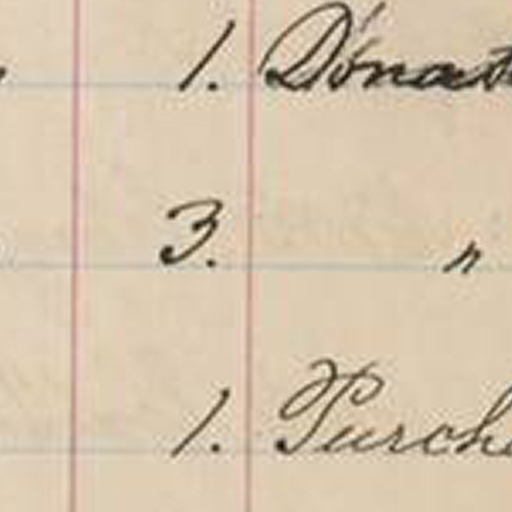 1. Donat
3. "
1. Purch